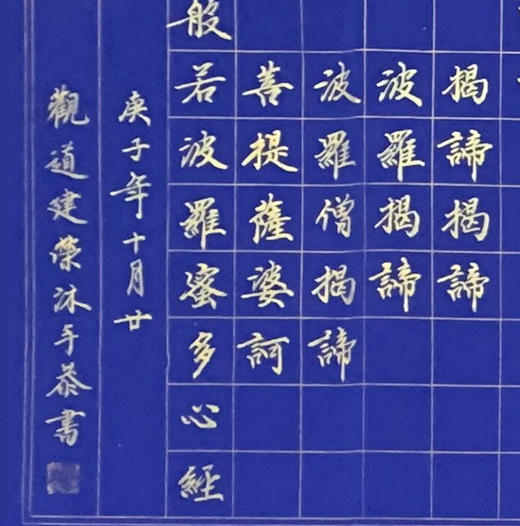 揭諦揭諦
波羅揭諦
波羅僧揭諦
菩提薩婆訶
般若波羅蜜多心經
庚子年十月廿
觀道建榮沐手恭書